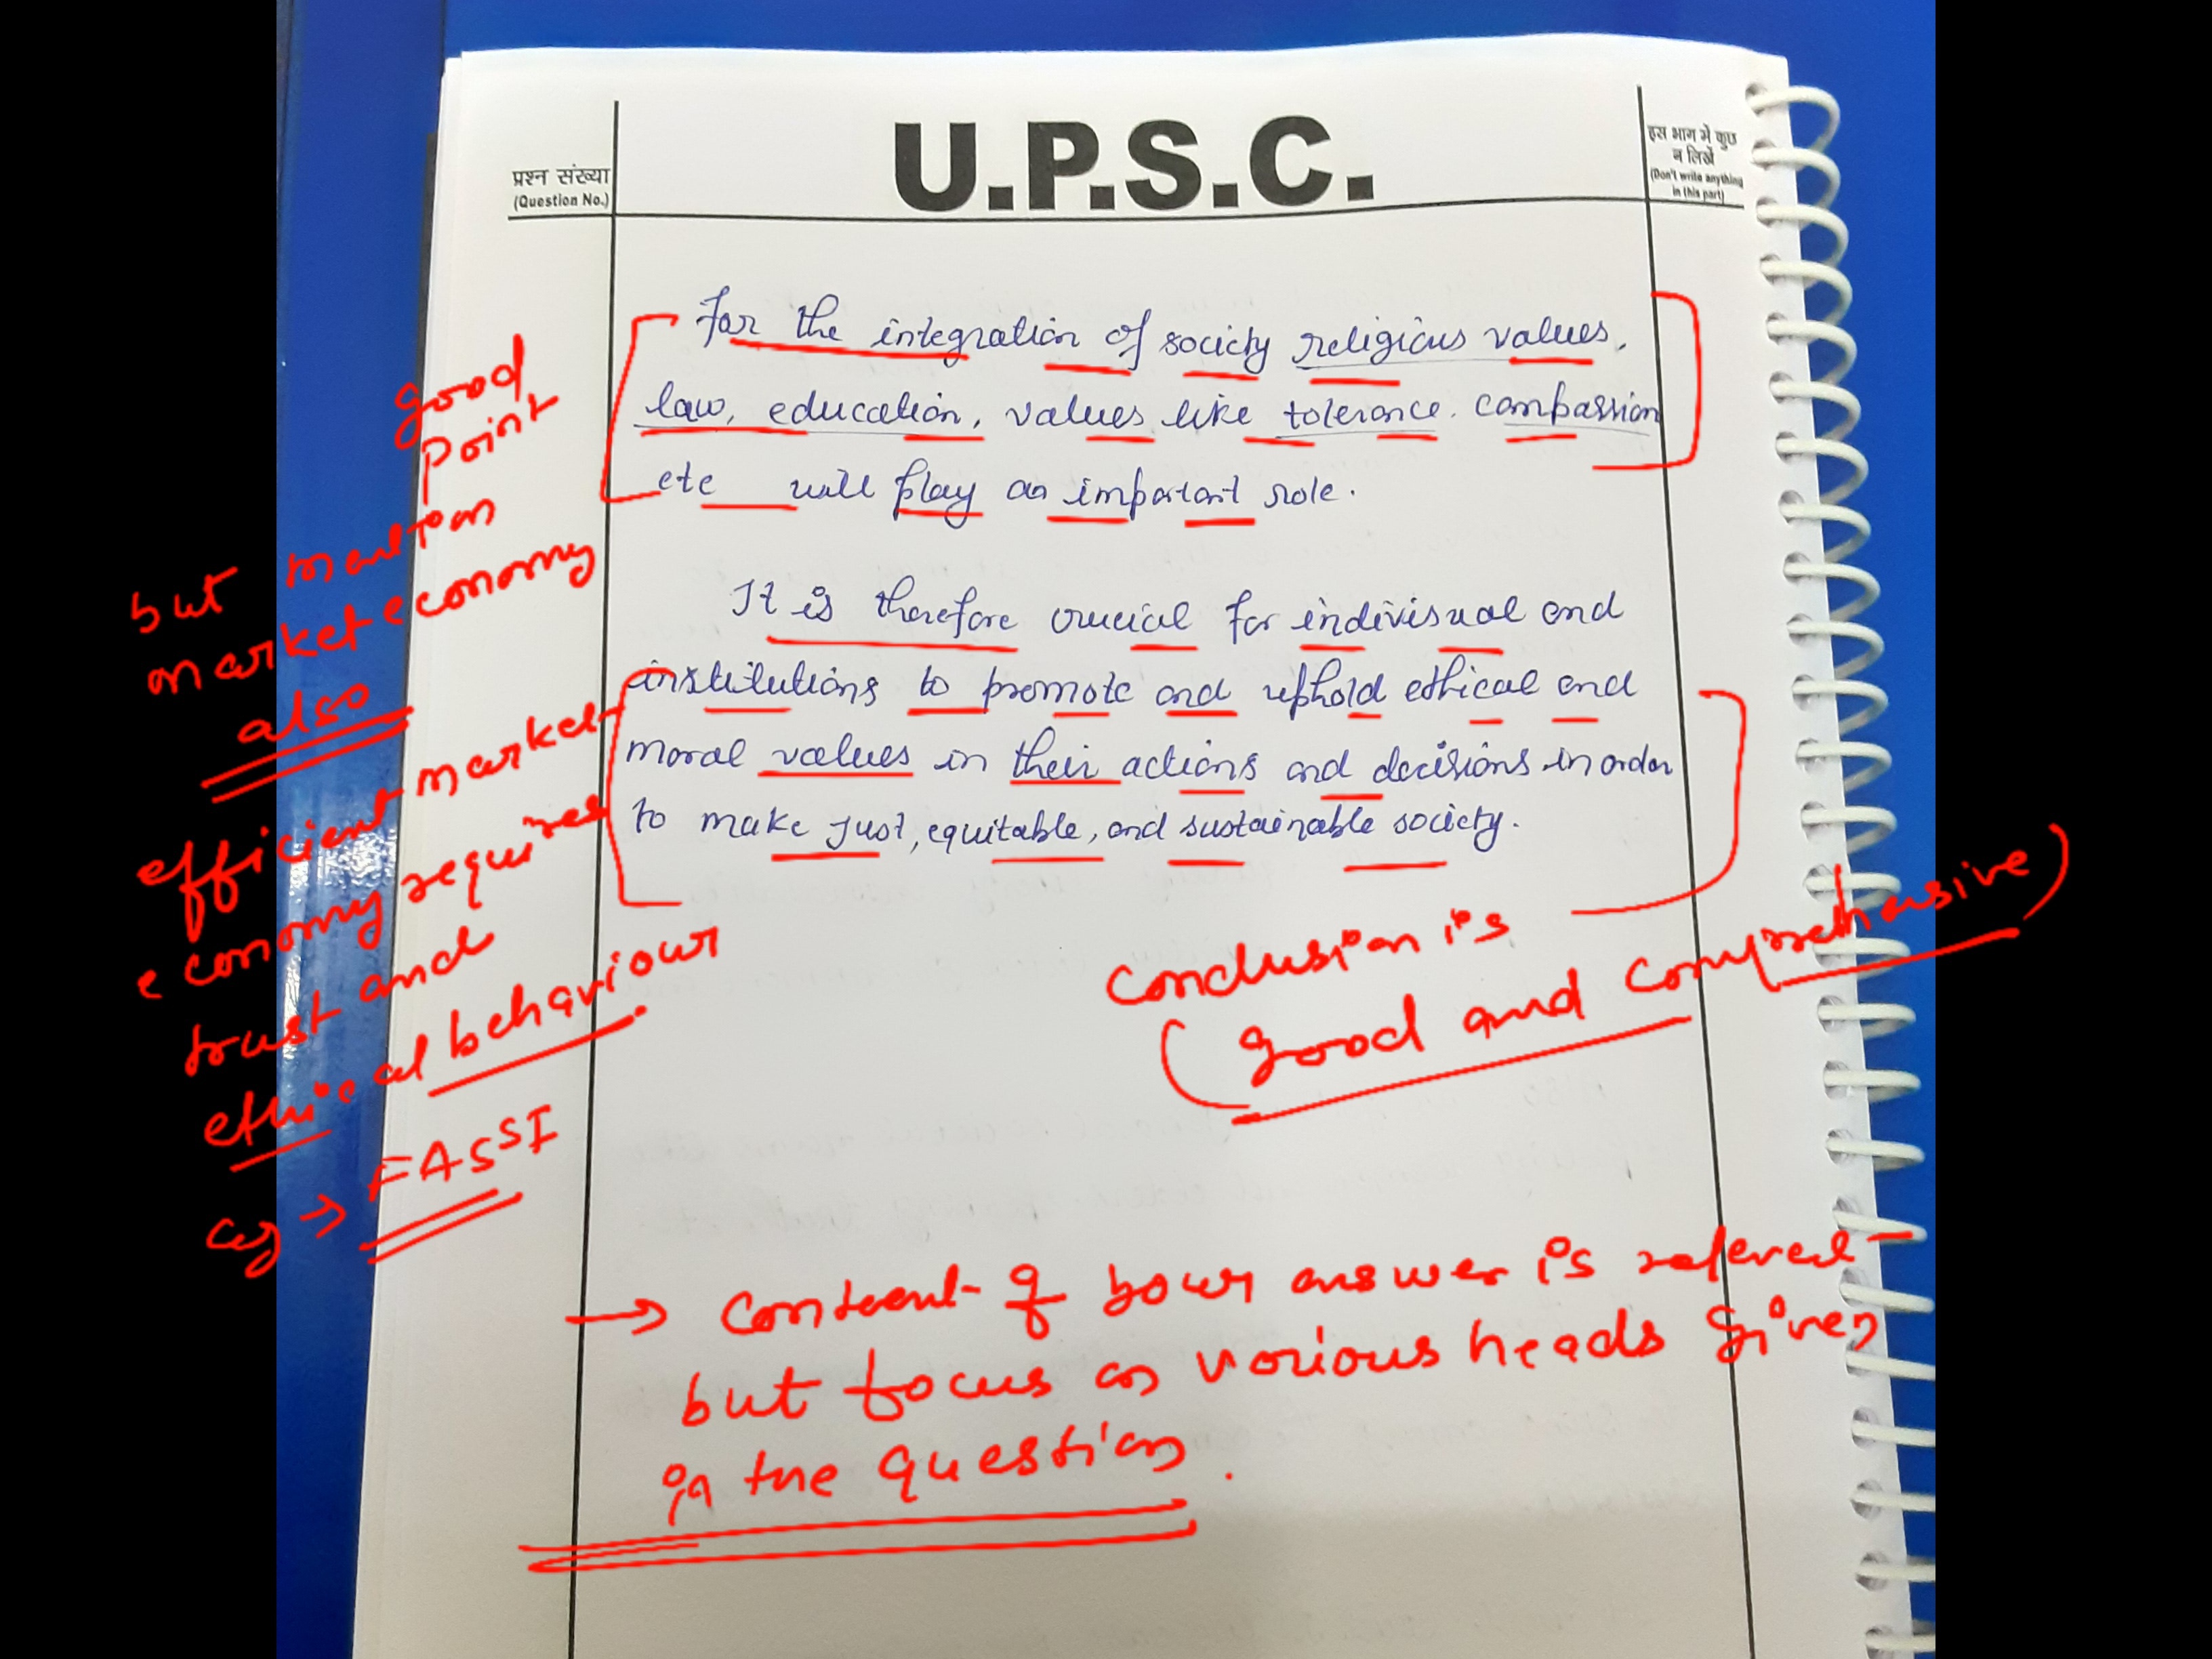 U.P.S.C.
प्रश्न संख्या
(Question No.)
इस भाग में कुछ
न लिखें
(Don't write anything
in this part)
For the integration of society religious values,
law, education, values like tolerance. compassion
etc will play an important role.
It is therefore crucial for indivisual and
institutions to promote and uphold ethical and
moral values in their actions and decisions in order
to make just, equitable, and sustainable society.
good
point
but mention
market economy
also
efficient market
economy requires
trust and
ethical behaviour
eg → FASSI
Conclusion is
(good and comprehensive)
→ Content of your answer is relevent
but focus on various heads given
in the question.